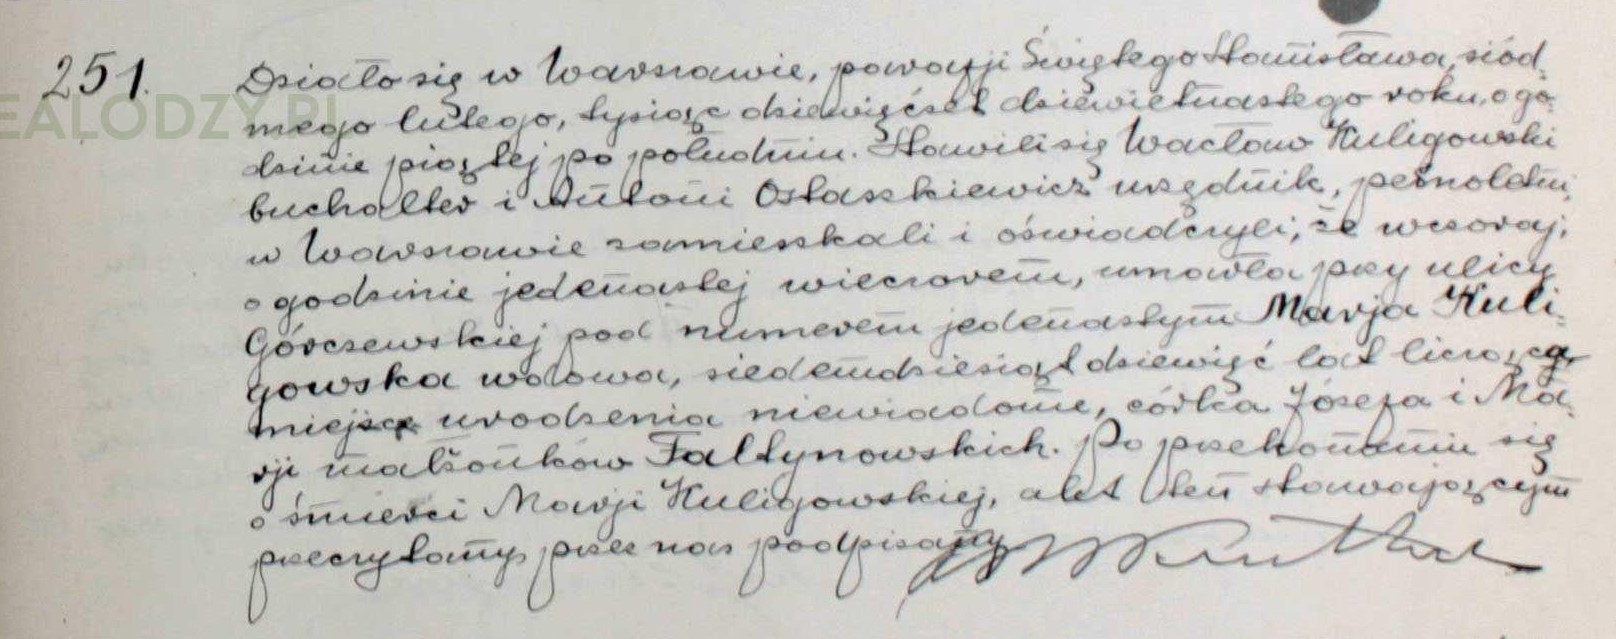 251.
Działo się w Warszawie, parafji Świętego Stanisława, siód-
mego lutego, tysiąc dziewięćset dziewiętnastego roku, o go-
dzinie piątej po południu. Stawili się Wacław Kuligowski
buchalter i Antoni Ostaszkiewicz urzędnik, pełnoletni,
w Warszawie zamieszkali i oświadczyli, że wczoraj,
o godzinie jedenastej wieczorem, umarła przy ulicy
Górczewskiej pod numerem jedenastym Marja Kuli-
gowska wdowa, siedemdziesiąt dziewięć lat licząca,
miejsce urodzenia niewiadome, córka Józefa i Ma-
rji małżonków Faltynowskich. Po przekonaniu się
o śmierci Marji Kuligowskiej, akt ten stawającym
przeczytany, przez nas podpisany
EALODZY.PL